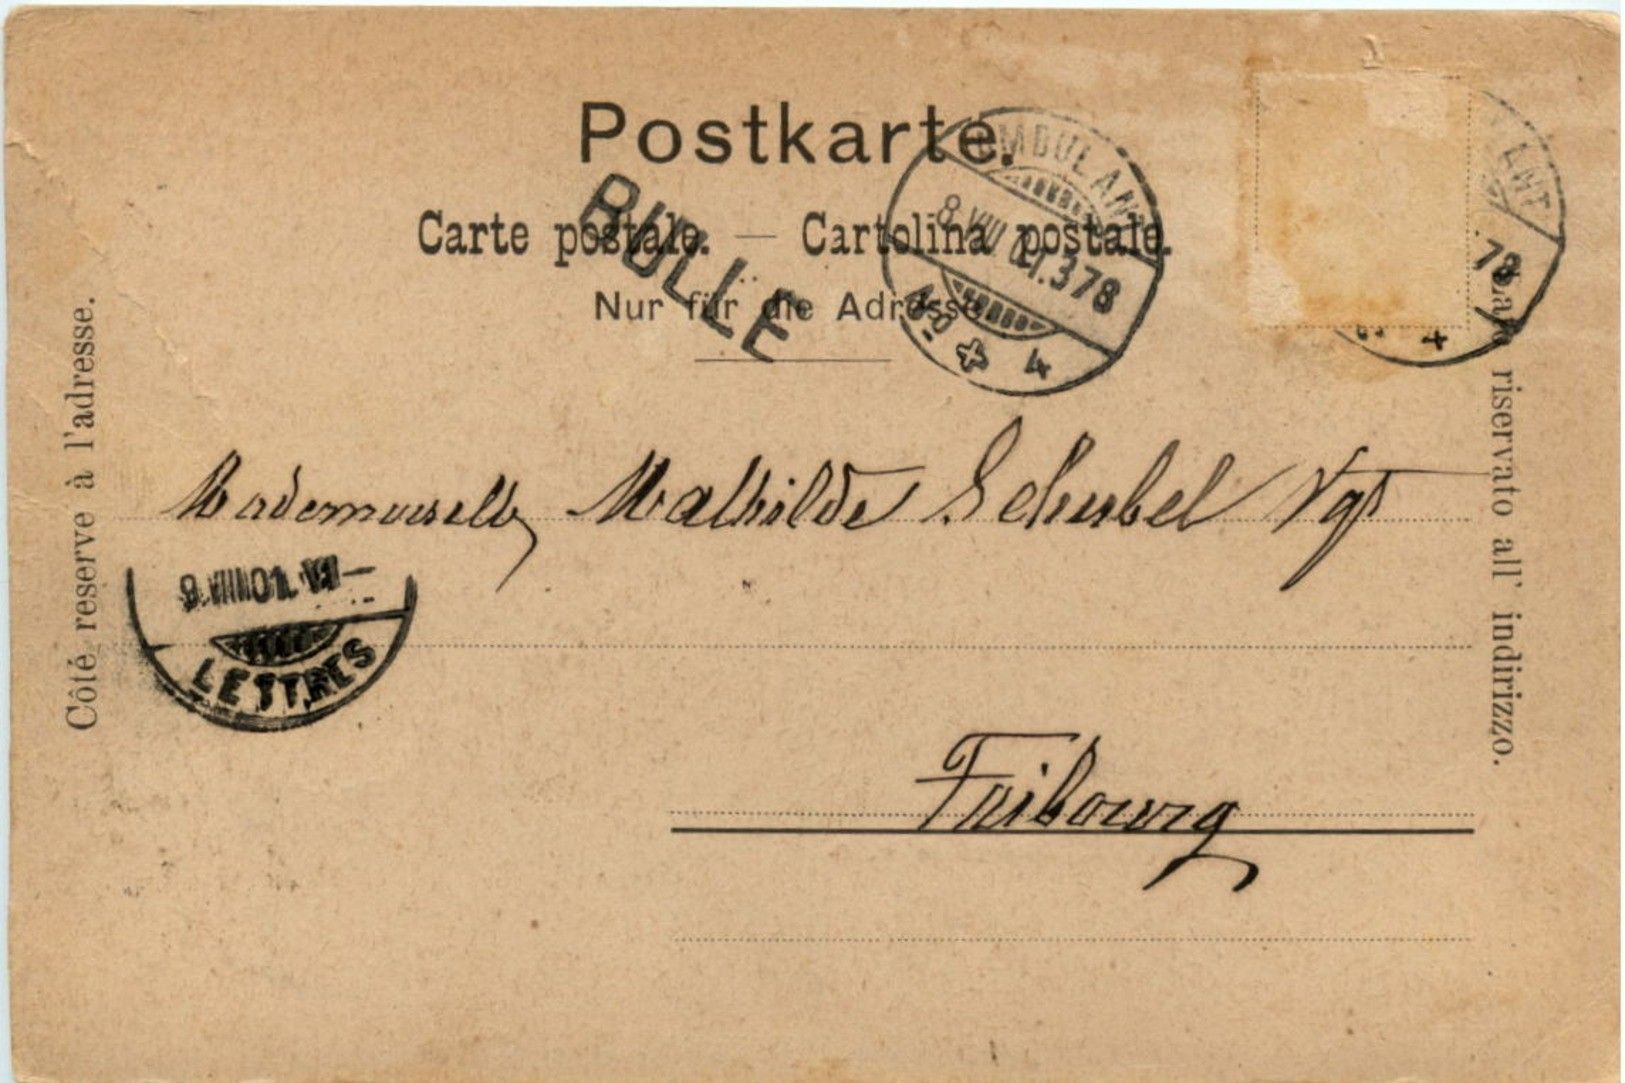 Postkarte.
Carte postale. — Cartolina postale.
Nur für die Adresse.
BULLE
AMBULANT
8.VIII.01.378
No 4
LANT
78
Côté reserve à l'adresse.
Lato riservato all' indirizzo.
Mademoiselle Mathilde Schubel Vgt
9.VIII.01. VI—
LETTRES
Fribourg